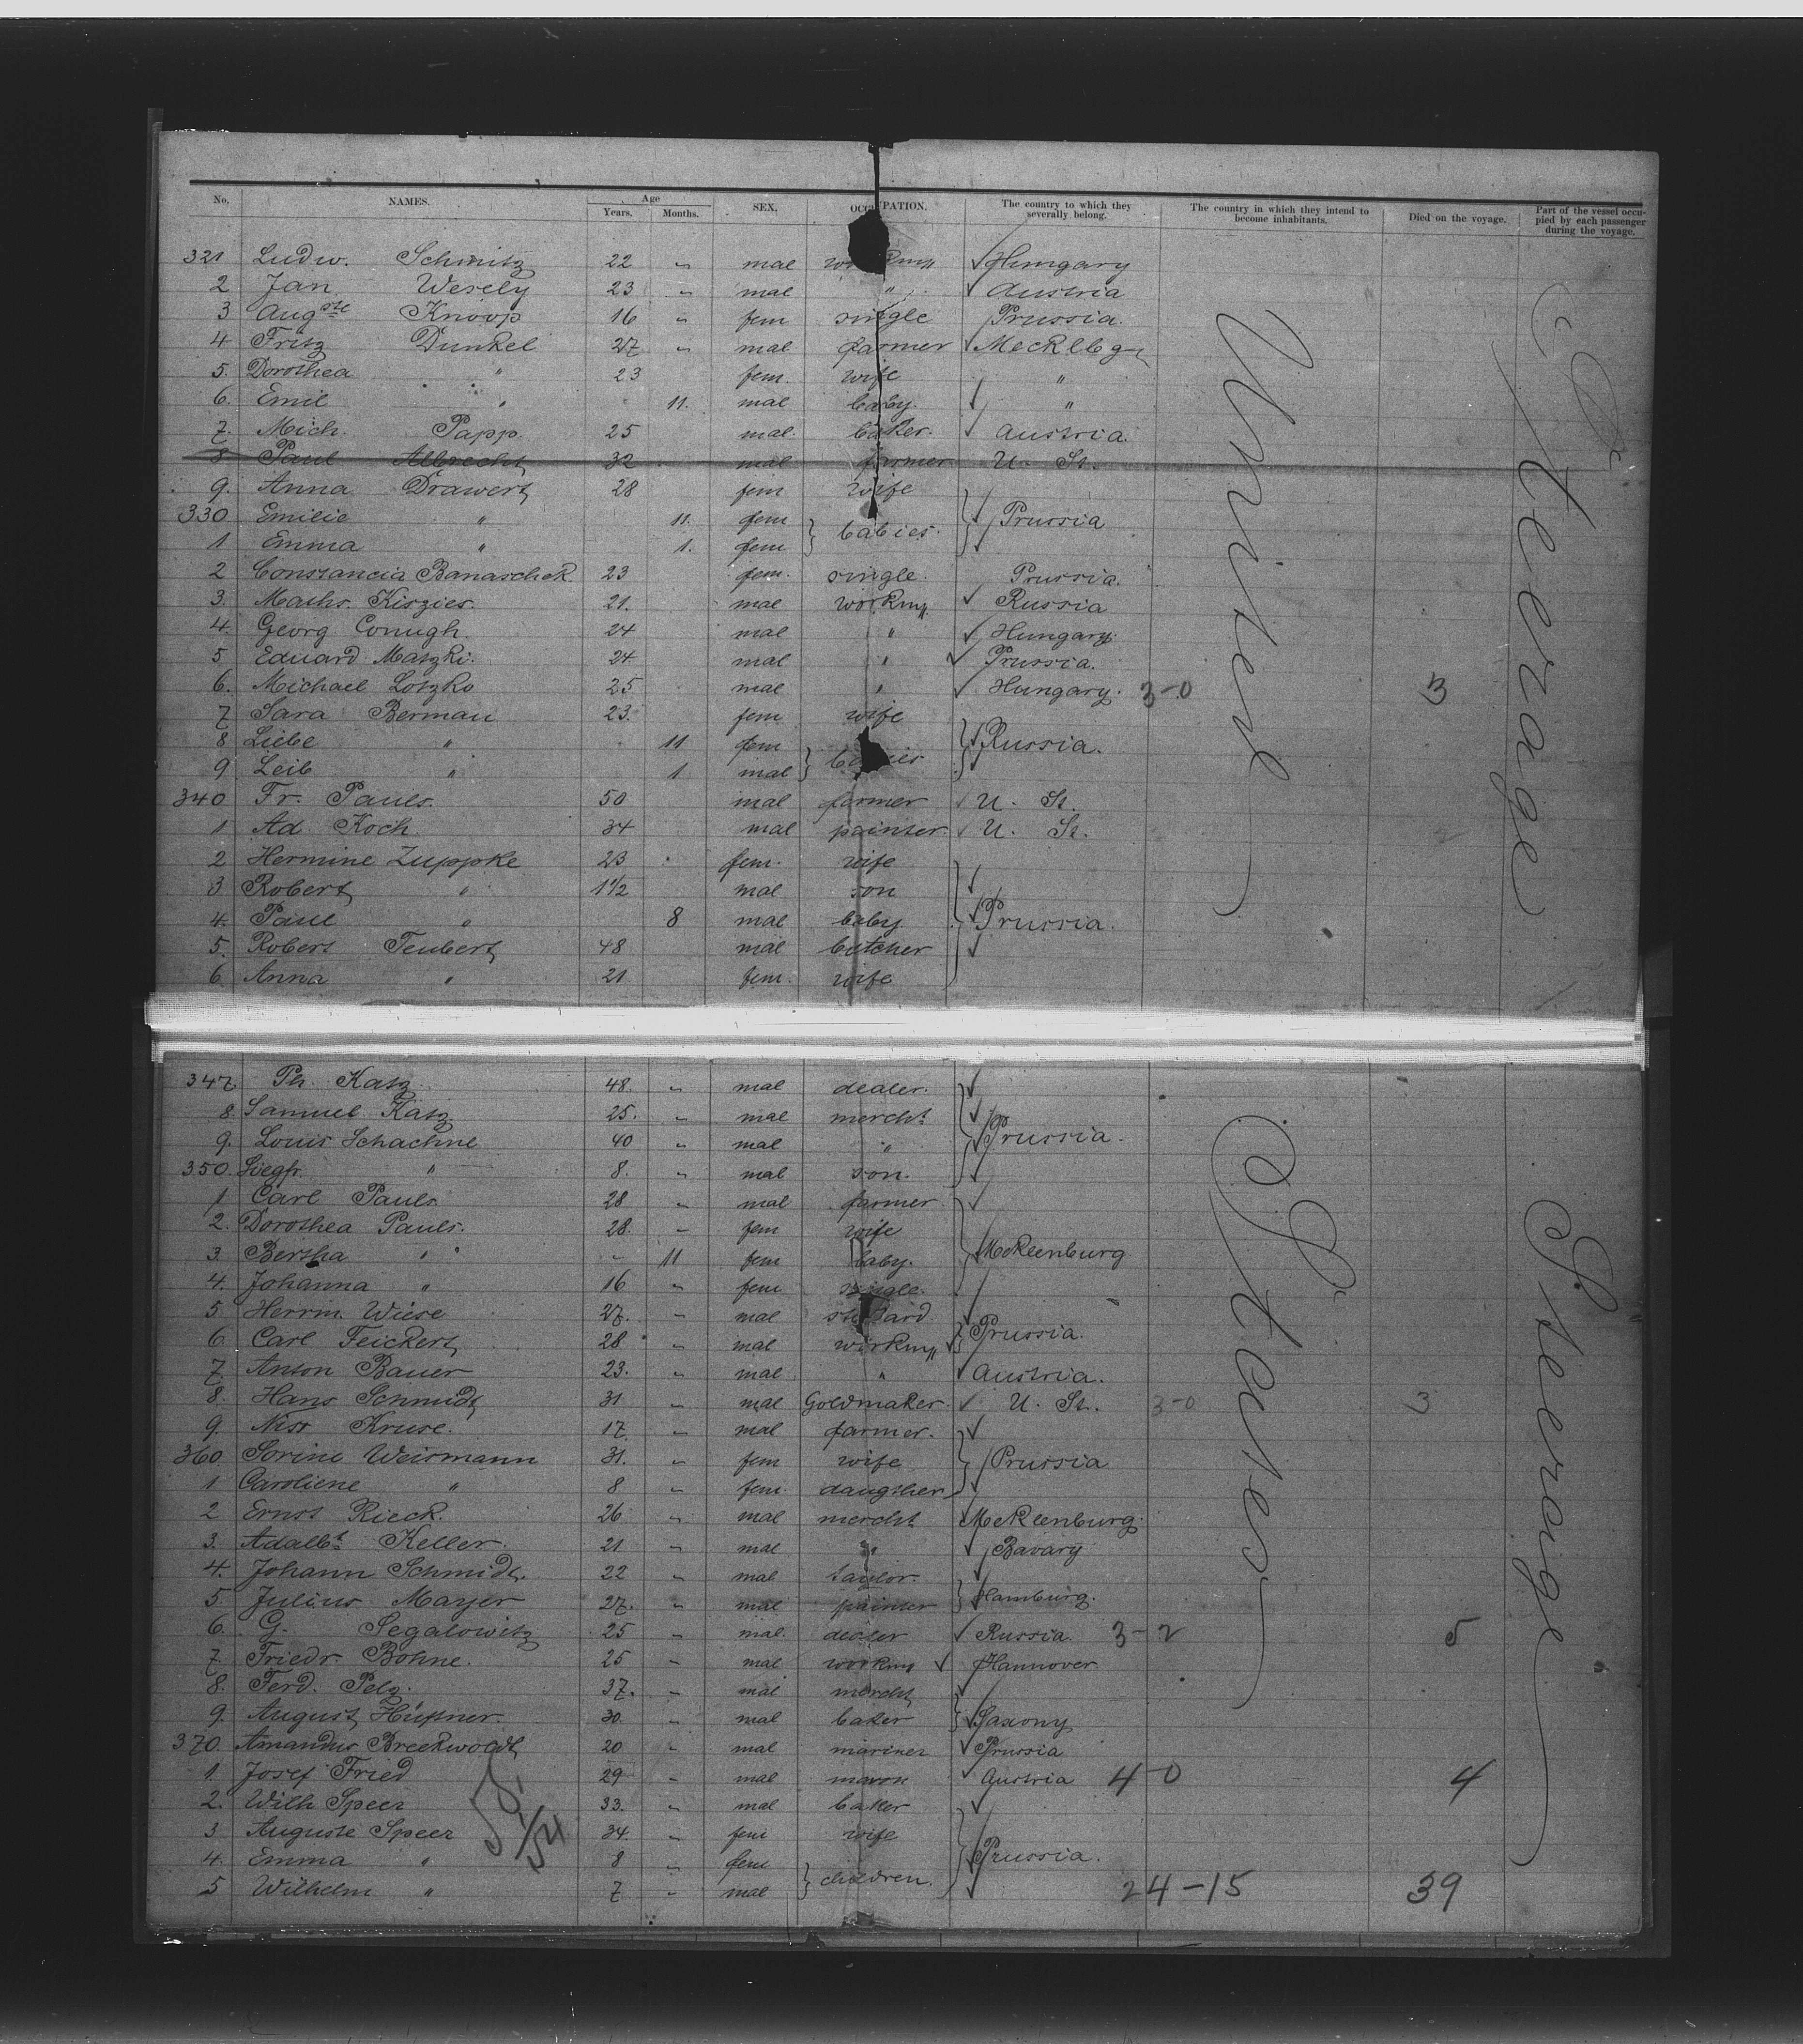 No. NAMES. Age Years. Months. SEX. OCCUPATION. The country to which they severally belong. The country in which they intend to become inhabitants. Died on the voyage. Part of the vessel occupied by each passenger during the voyage.
321 Ludw. Schmitz 22 " mal workm,, Hungary
2 Jan Wesely 23 " mal " Austria
3 Aug.ste Knoop 16 " fem single Prussia.
4 Fritz Dunkel 27 " mal farmer Mecklbg
5. Dorothea " 23 fem. wife "
6. Emil " 11. mal baby. "
7. Mich. Papp. 25 mal. baker. Austria.
8 Paul Albrecht 32 mal farmer U. St.
9. Anna Drawert 28 fem wife
330 Emilie " 11. fem babies. Prussia
1 Emma " 1. fem
2 Constancia Banaschek 23 fem. single. Prussia.
3. Maths. Kiszies. 21. mal workm,, Russia
4. Georg Conugh. 24 mal " Hungary.
5 Eduard Matzki. 24 mal " Prussia.
6. Michael Lotzko 25 mal " Hungary. 3-0 3
7 Sara Berman 23. fem wife
8 Liebe " 11 fem babies Russia.
9 Leib " 1 mal
340 Fr. Pauls. 50 mal farmer U. St.
1 Ad. Koch. 34 mal painter. U. St.
2 Hermine Zuppke 23 fem. wife
3 Robert " 1 1/2 mal son
4. Paul " 8 mal baby Prussia.
5. Robert Teubert 48 mal butcher
6 Anna " 21 fem. wife
United
Steerage
347 Ph. Katz 48. " mal dealer.
8 Samuel Katz 25. " mal mercht
9. Louis Schachne 40 " mal " Prussia.
350. Siegfr. " 8. " mal son.
1 Carl Pauls 28 " mal farmer
2. Dorothea Pauls. 28. " fem wife
3. Bertha " " 11 fem baby. Meklenburg
4. Johanna " 16 " fem single.
5 Herrm. Wiese 27. " mal
6. Carl Feickert 28 " mal workm,, Prussia.
7. Anton Bauer 23. " mal " Austria.
8. Hans Schmidt 31 " mal Goldmaker. U. St. 3-0 3
9. Niss Kruse. 17. " mal farmer.
360 Sorine Weismann 31. " fem wife Prussia
1 Caroliene " 8 " fem. daugther
2 Ernst Rieck. 26 " mal mercht Meklenburg.
3. Adalbt Keller. 21 " mal " Bavary
4. Johann Schmidt. 22 " mal taylor.
5. Julius Mayer 27. " mal painter Hamburg.
6. G. Segalowitz 25 " mal. dealer Russia. 3-2 5
7. Friedr. Bohne. 25 " mal workm Hannover
8. Ferd. Pelz. 37. " mal mercht
9. August Hüfner. 30. " mal baker Saxony
370. Amandus Breckwoldt 20 " mal mariner Prussia
1. Josef Fried 29 " mal mason Austria 4-0 4
2. Wilh Speer 33. " mal baker
3 Auguste Speer 34. " fem wife
4. Emma " 8 " fem children. Prussia.
5 Wilhelm " 7 " mal 24-15 39
States
Steerage